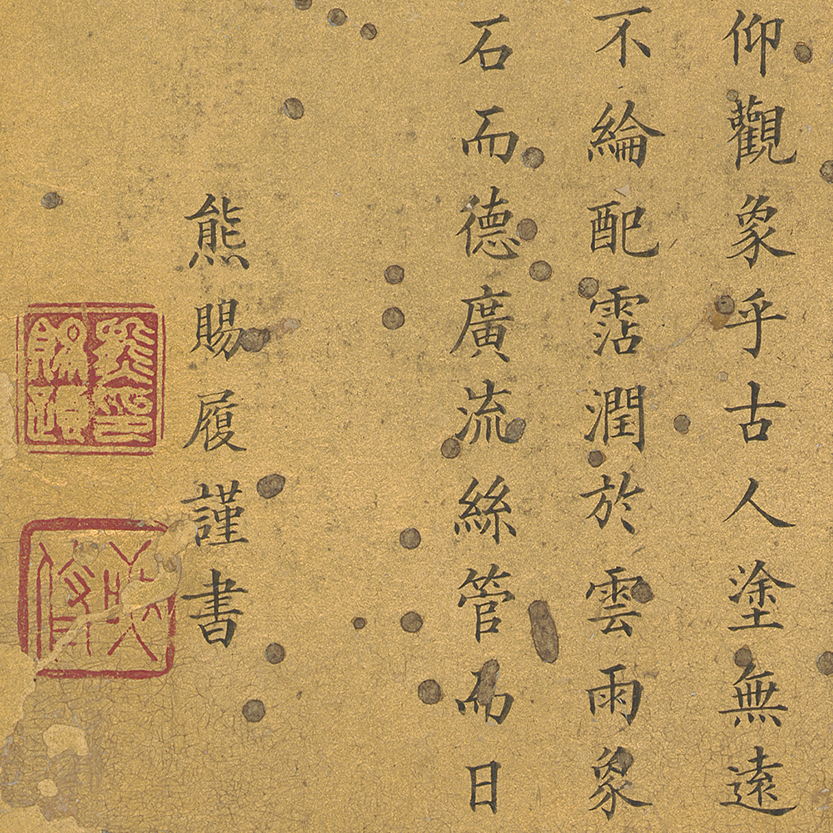 仰觀象乎古人塗無遠
不綸配霑潤於雲雨象
石而德廣流絲管而日
熊賜履謹書
熊印賜履